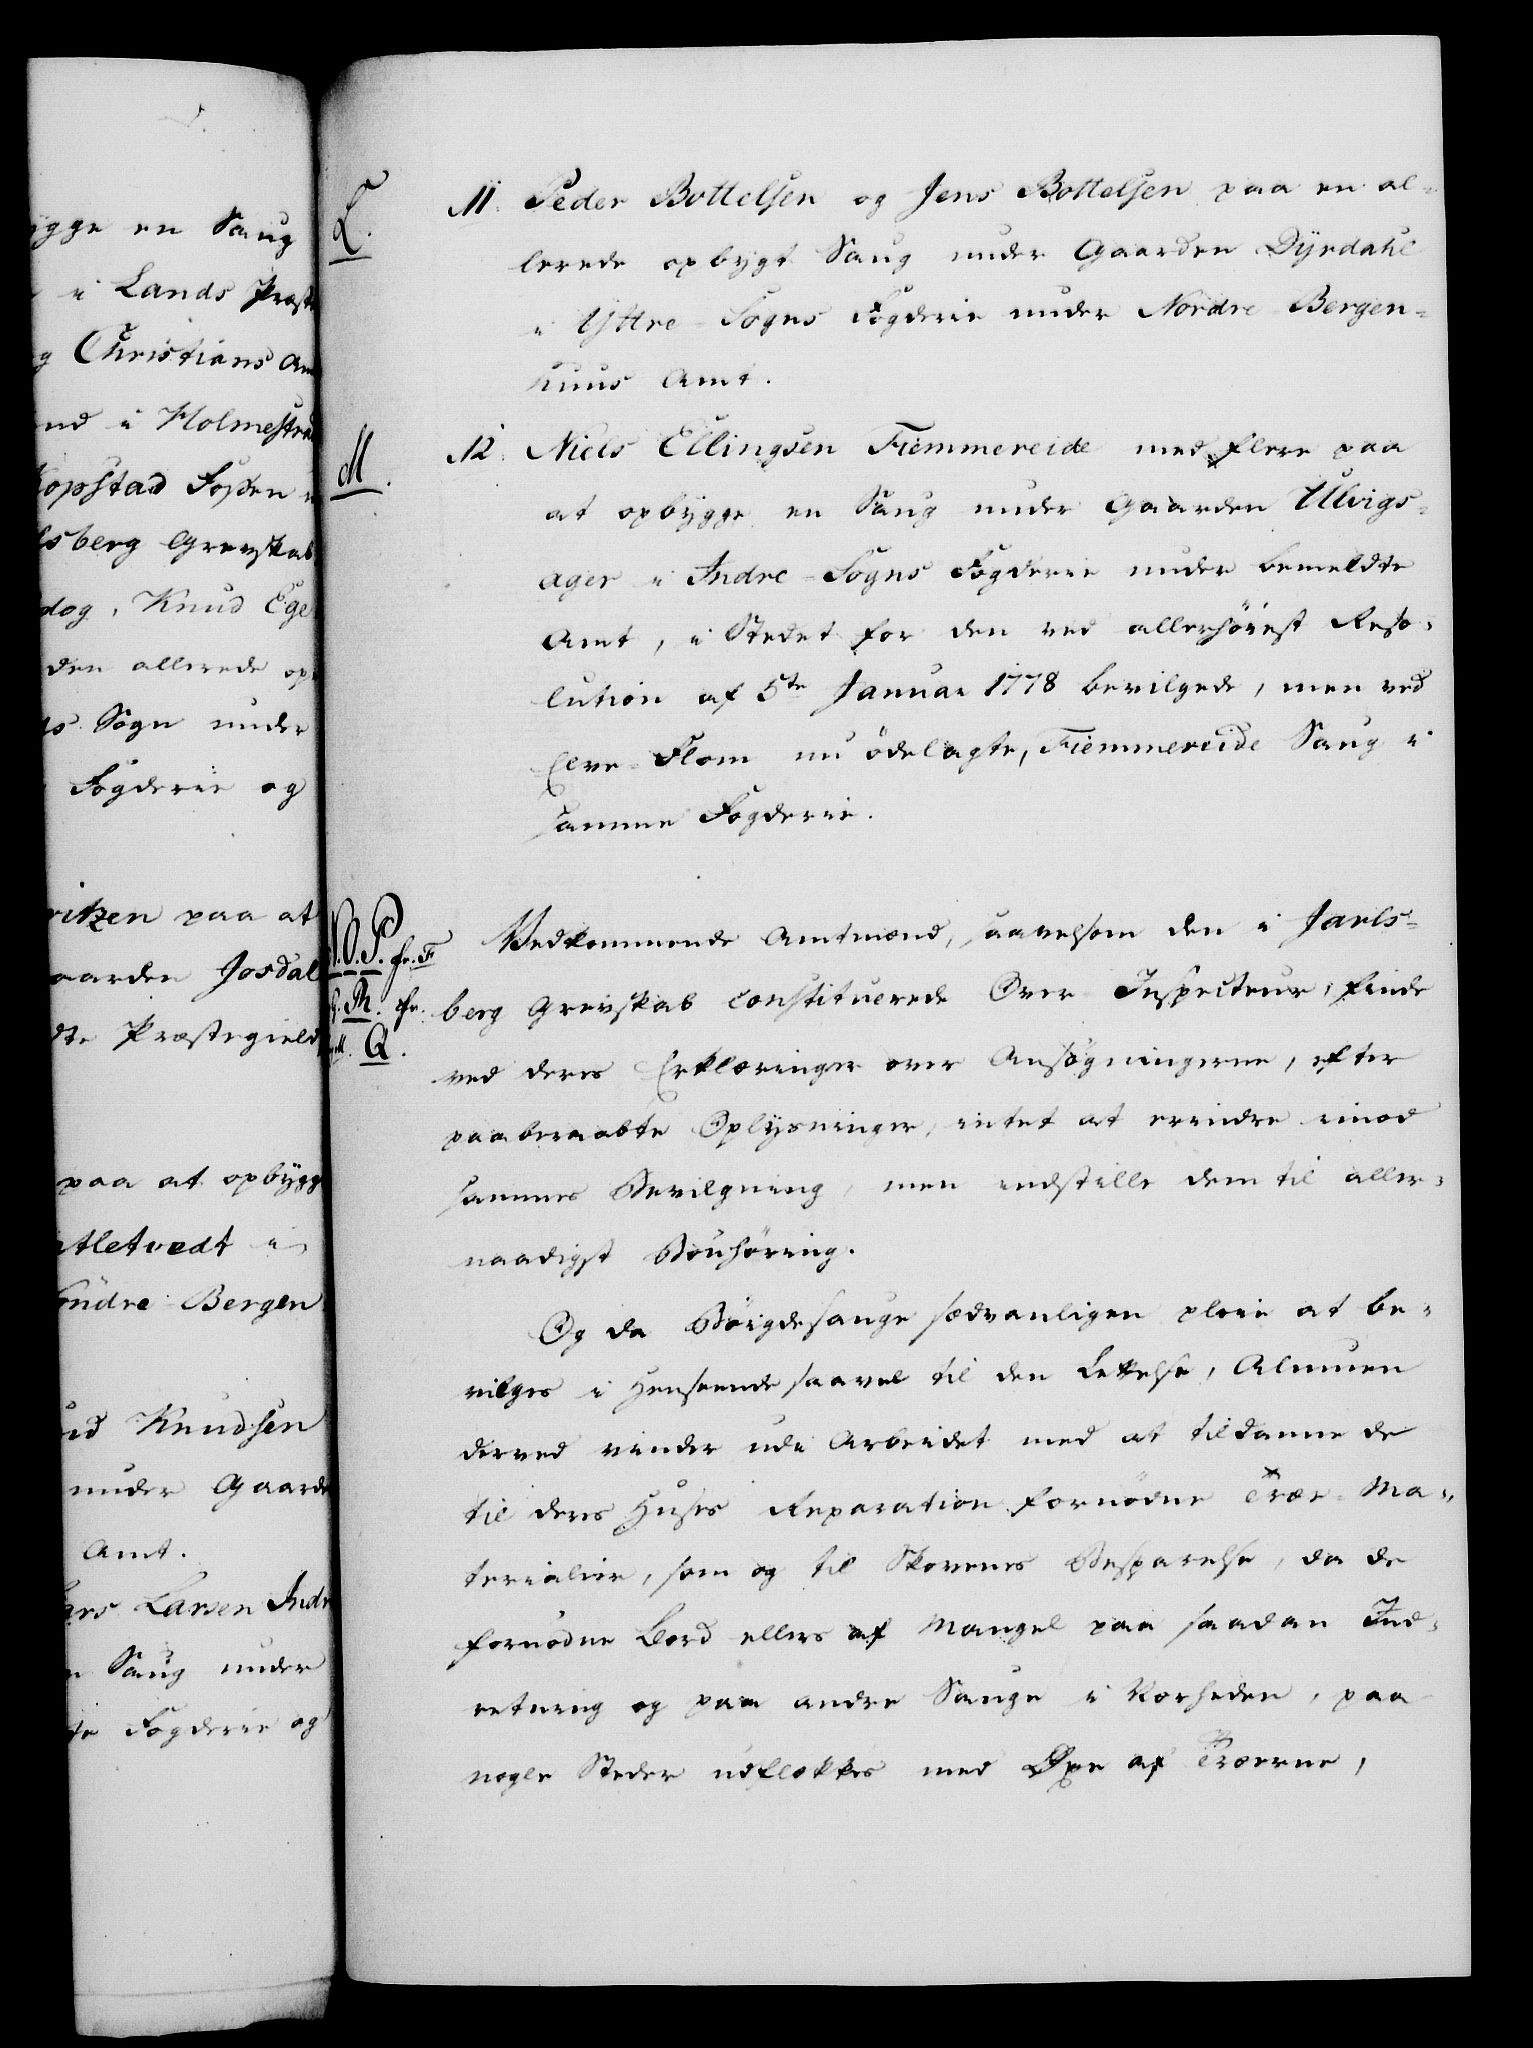 ygge en Saug
i Lands Præste
g Christians Am
nd i Holmestra
Kopstad Fossen
lsberg Grevskab
dog, Knud Ege
den allerede op
Sogn under
Fogderie og
ritzen paa at
aarden Josdal
dte Præstegield
paa at opbygg
tletvedt i
Söndre Bergen
Knudsen
under Gaarde
Amt.
Lars Larsen Indr
Saug under
Fogderie og
L.
11. Peder Bottelsen og Jens Bottelsen paa en al=
lerede opbygt Saug under Gaarden Dyrdahl
i Yttre-Sogns Fogderie under Nordre Bergen=
huus Amt.
M.
12. Niels Ellingsen Fiemmereide med flere paa
at opbygge en Saug under Gaarden Ulvigs=
ager i Indre-Sogns Fogderie under bemeldte
Amt, i Stedet for den ved allerhöiest Reso=
lution af 5te Januar 1778 bevilgede, men ved
Elve-Flom nu ödelagte, Fiemmereide Saug i
samme Fogderie.
N.O.P. fr. F
Ph. fr.
Q.
Vedkommende Amtmænd, saavelsom den i Jarls=
berg Grevskab constituerede Over-Inspecteur, finde
ved deres Erklæringer over Ansögningerne, efter
paaberaabte Oplysninger, intet at erindre imod
sammes Bevilgning, men indstille dem til aller=
naadigst Bönhöring.
Og da Böigdesauge sædvanligen pleie at be=
vilges i Henseende saavel til den Lettelse, Almuen
derved vinder udi Arbeidet med at tildanne de
til deres Huses Reparation fornödne Træe-Ma=
terialier, som og til Skovenes Besparelse, da de
fornödne Bord ellers af Mangel paa saadan Ind=
retning og paa andre Sauge i Nærheden, paa
nogle Steder udflækkes med Öxe af Træerne,